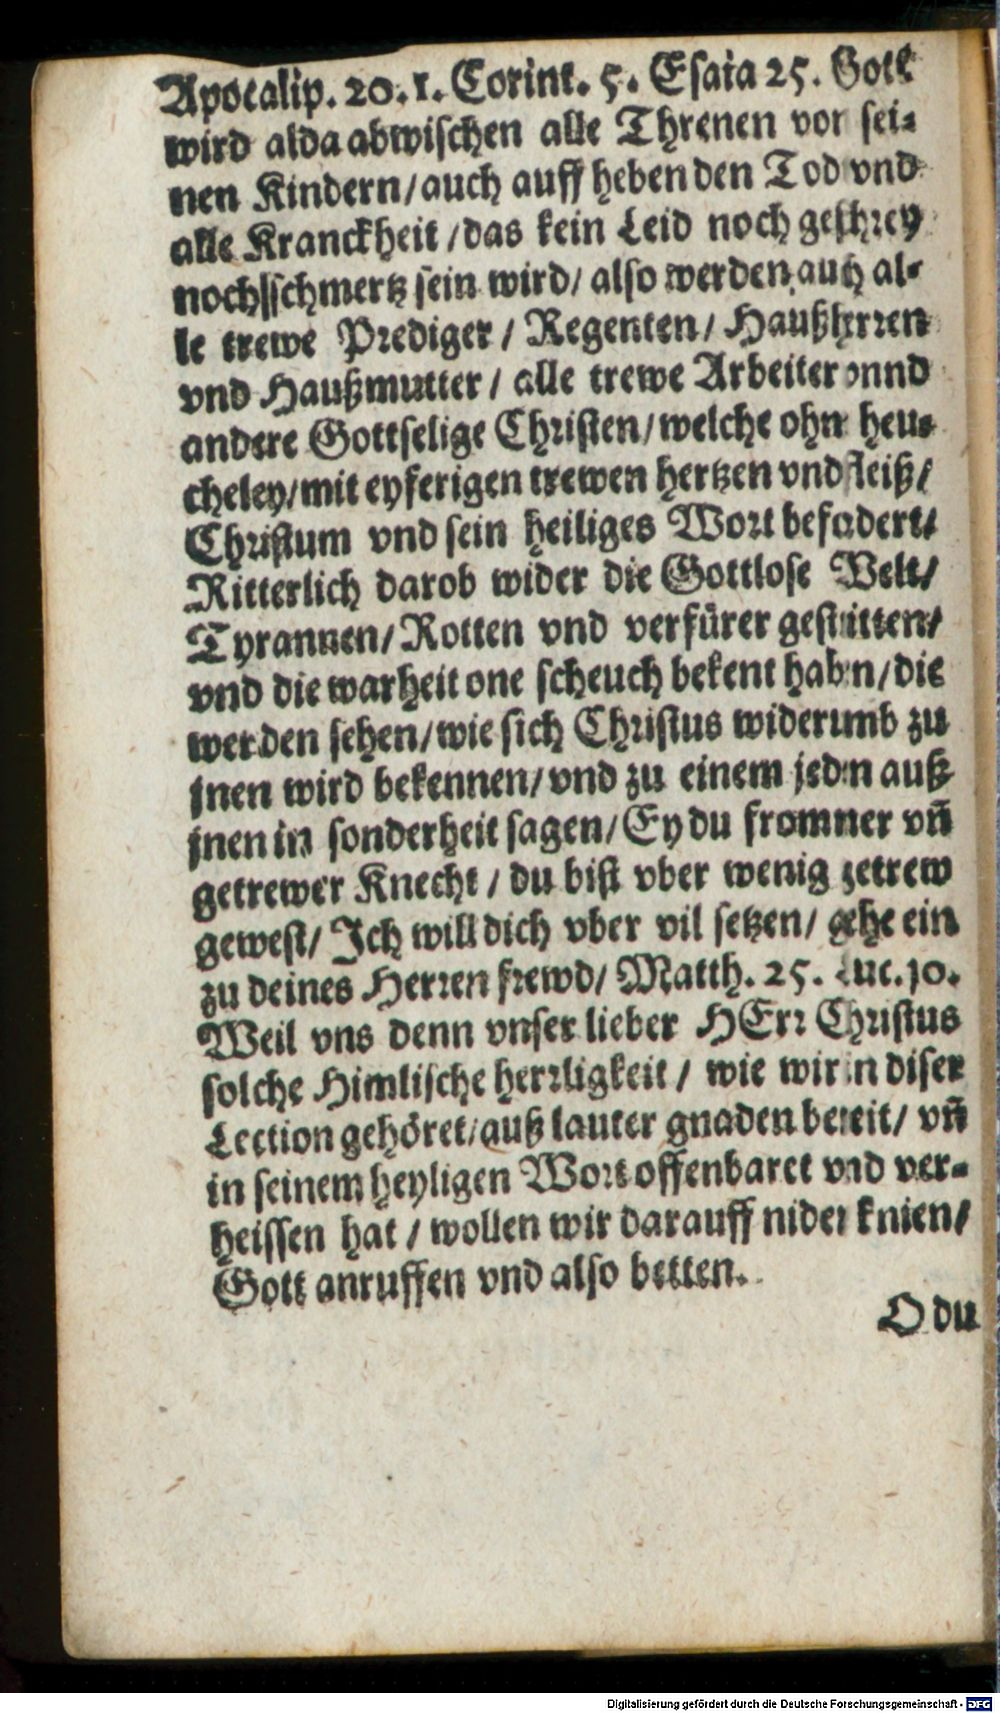 Apocalip. 20. 1. Corint. 5. Esaia 25. Gott
wird alda abwischen alle Threnen vor sei-
nen Kindern/ auch auff heben den Tod vnd
alle Kranckheit/ das kein Leid noch geschrey
noch schmertz sein wird/ also werden auch al-
le trewe Prediger/ Regenten/ Haußherren
vnd Haußmutter/ alle trewe Arbeiter vnnd
andere Gottselige Christen/ welche ohn heu-
cheley/ mit eyferigen trewen hertzen vnd fleiß/
Christum vnd sein heiliges Wort befodert/
Ritterlich darob wider die Gottlose Welt/
Tyrannen/ Rotten vnd verfürer gestritten/
vnd die warheit one scheuch bekent haben/ die
werden sehen/ wie sich Christus widerumb zu
jnen wird bekennen/ vnd zu einem jeden auß
jnen in sonderheit sagen/ Ey du frommer vn̄
getrewer Knecht/ du bist vber wenig getrew
gewest/ Ich will dich vber vil setzen/ gehe ein
zu deines Herren frewd/ Matth. 25. Luc. 10.
Weil vns denn vnser lieber HErr Christus
solche Himlische herrligkeit/ wie wir in diser
Lection gehöret/ auß lauter gnaden bereit/ vn̄
in seinem heyligen Wort offenbaret vnd ver-
heissen hat/ wollen wir darauff nider knien/
Gott anruffen vnd also betten.
O du
Digitalisierung gefördert durch die Deutsche Forschungsgemeinschaft - DFG